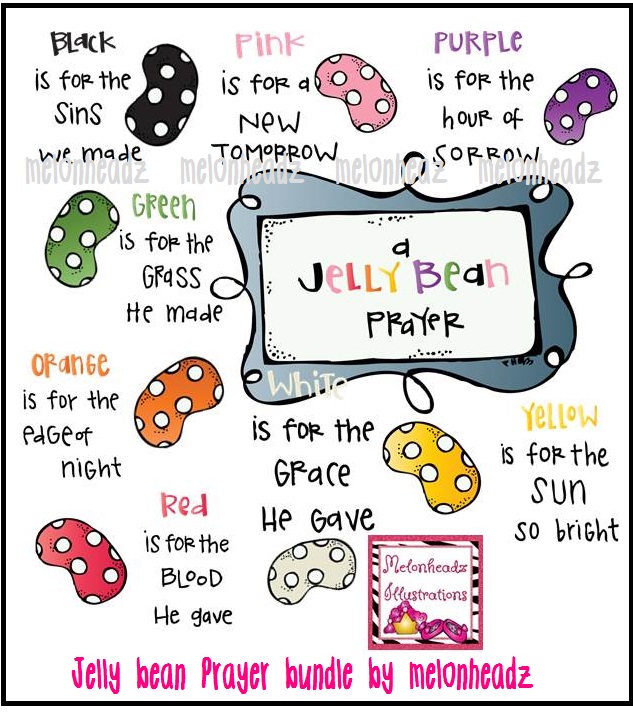 Black
is for the
Sins
we made
Pink
is for a
New
Tomorrow
Purple
is for the
hour of
Sorrow
melonheadz melonheadz melonheadz melonheadz
Green
is for the
Grass
He made
a
Jelly Bean
Prayer
Orange
is for the
edge of
night
White
is for the
Grace
He Gave
Yellow
is for the
Sun
so bright
Red
is for the
Blood
He gave
Melonheadz
Illustrations
Jelly bean Prayer bundle by melonheadz